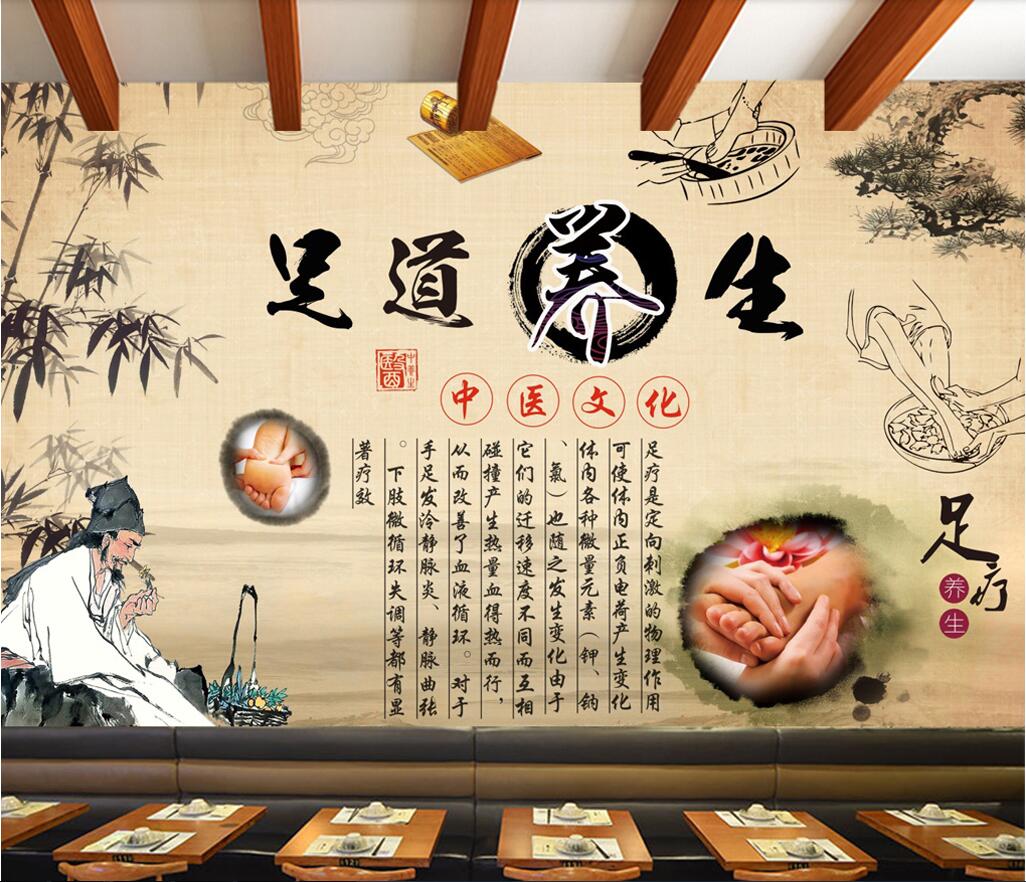 足道养生
醫
中養生
中医文化
足疗是定向刺激的物理作用
可使体内正负电荷产生变化
体内各种微量元素（钾、钠
、氯）也随之发生变化由于
它们的迁移速度不同而互相
碰撞产生热量血得热而行，
从而改善了血液循环。对于
手足发冷静脉炎、静脉曲张
。下肢微循环失调等都有显
著疗效
足疗
养生